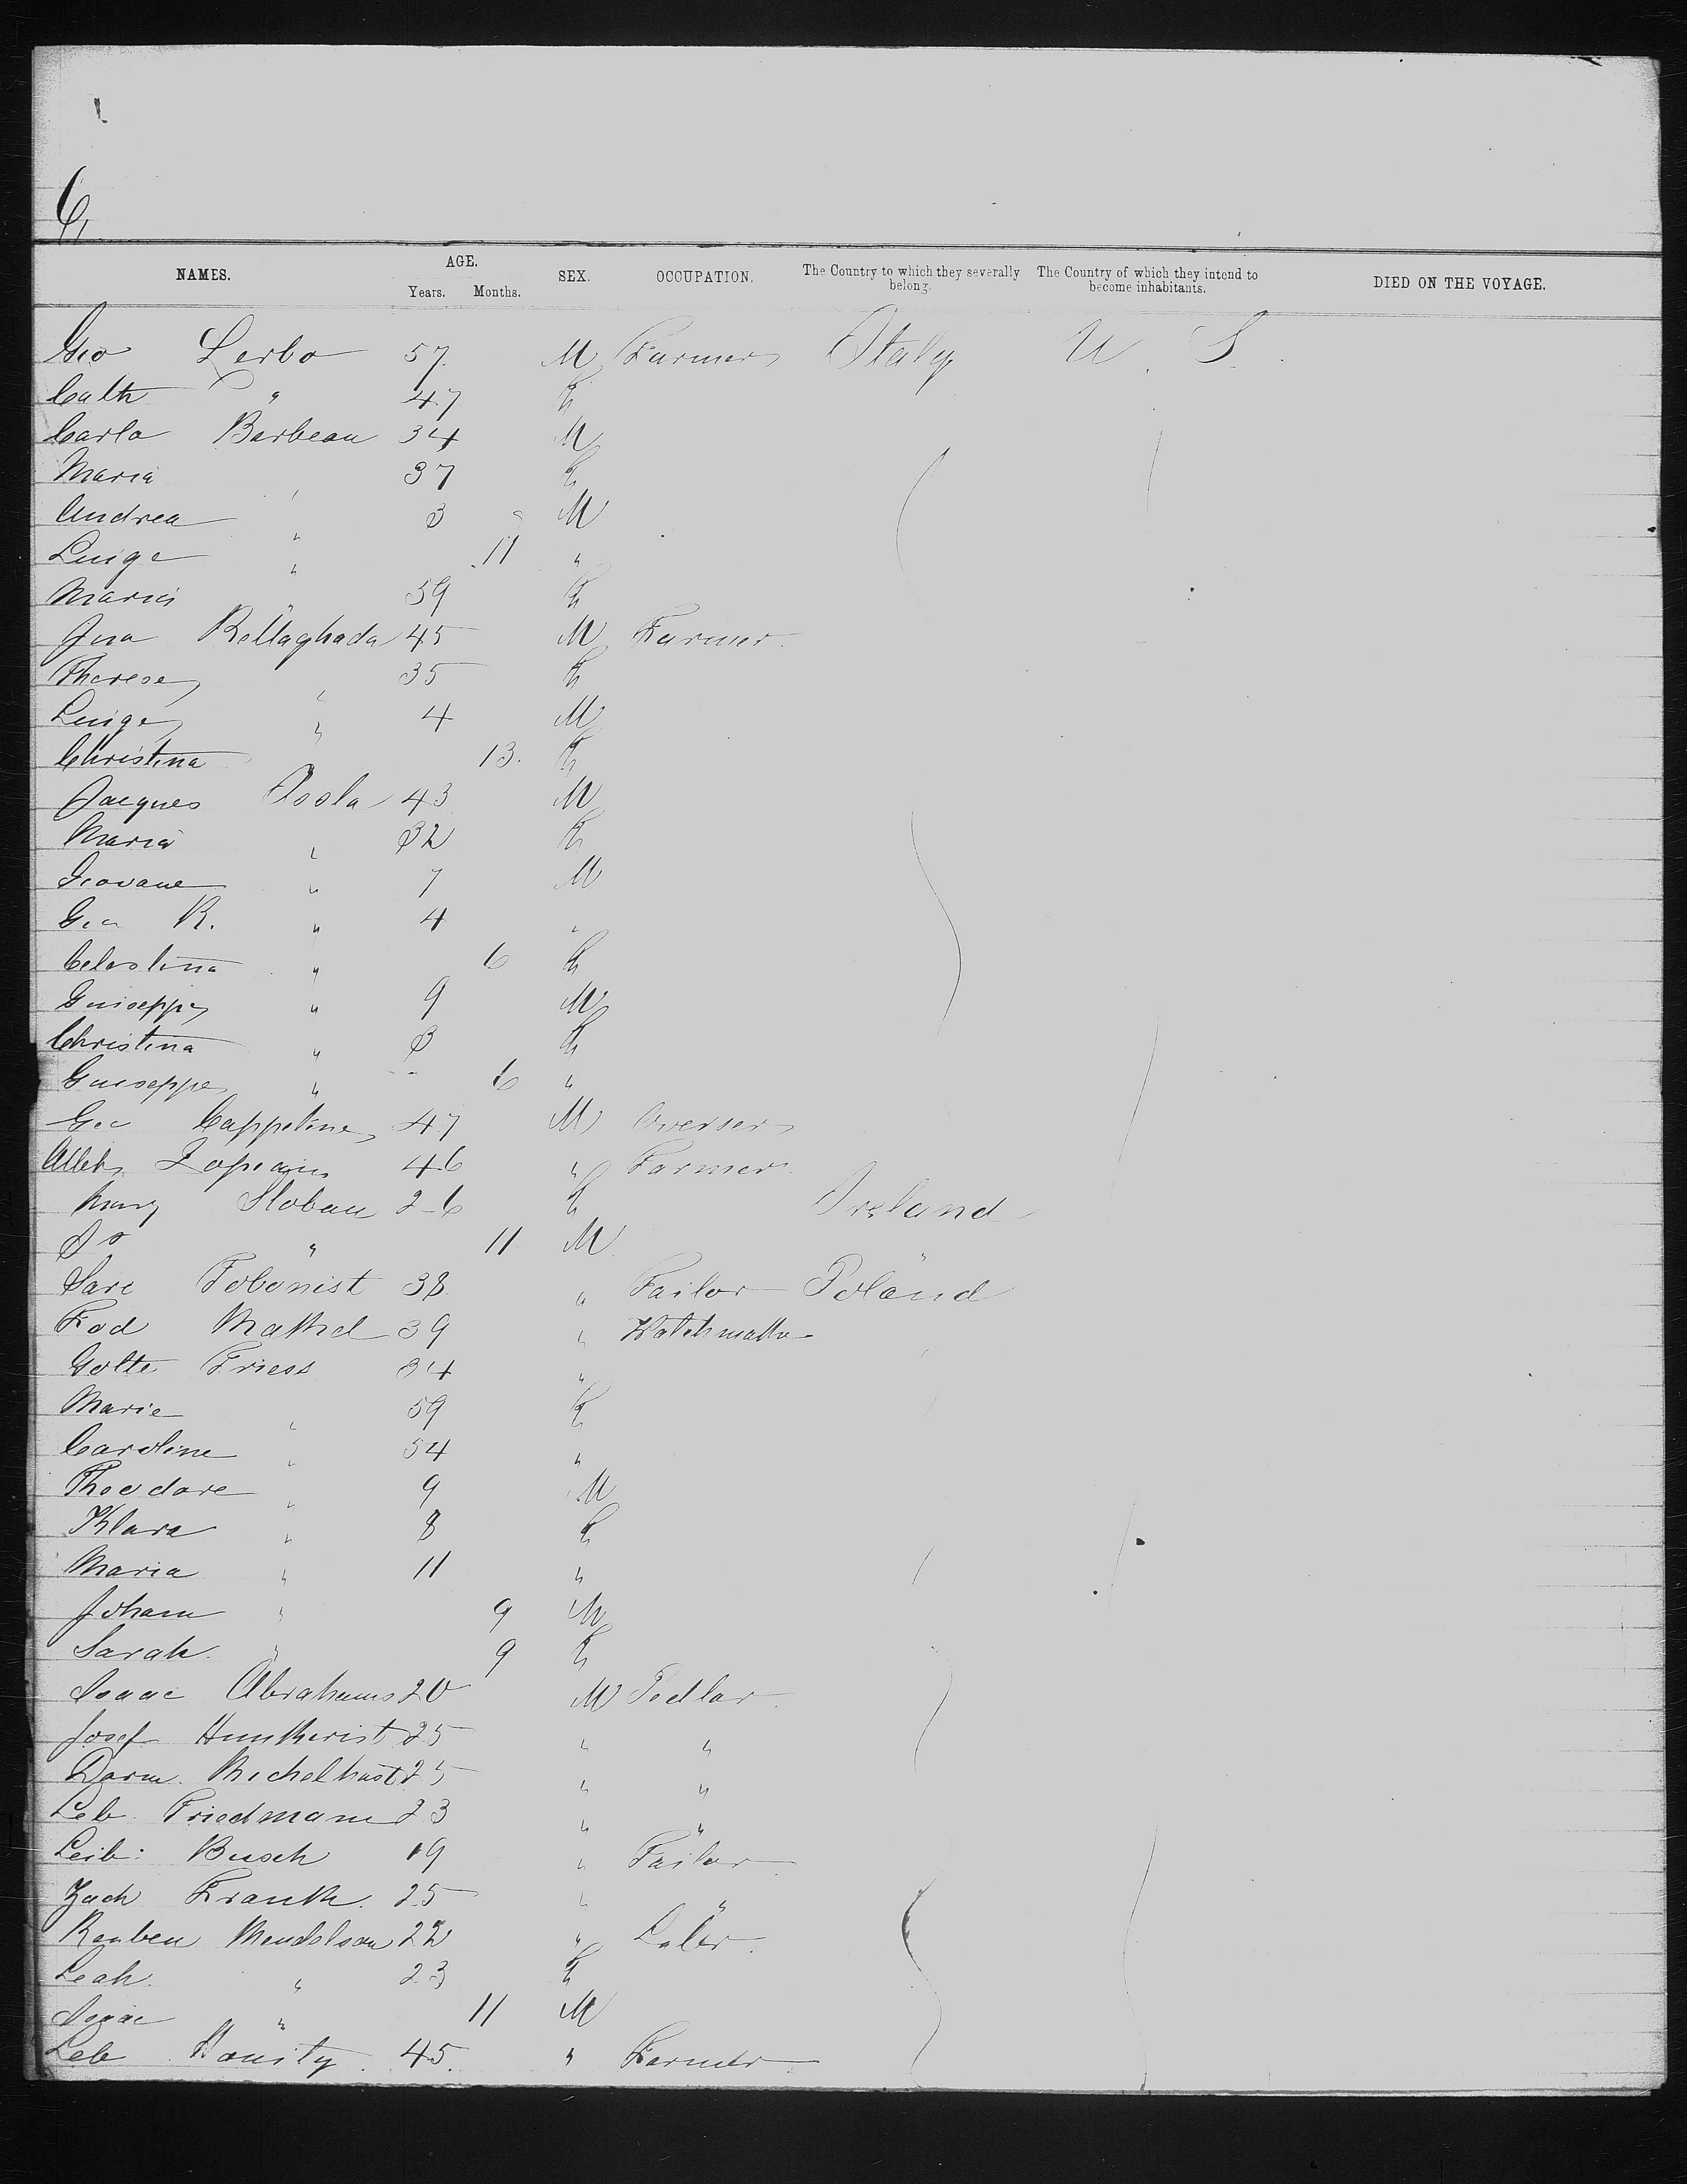 6
NAMES. AGE. SEX. OCCUPATION. The Country to which they severally belong. The Country of which they intend to become inhabitants. DIED ON THE VOYAGE.
Years. Months.
Geo Lerbo 57 M Farmer Italy U. S.
Cath " 47 F
Carlo Barbeau 34 M
Maria " 37 F
Andrea " 3 M
Luige " 11 "
Maria " 59 F
Jna Bellaghada 45 M Farmer
Therese " 35 F
Luige " 4 M
Christina " 13. F
Jacques Isola 43 M
Maria " 32 F
Giovane " 7 M
Geo R. " 4 "
Celestina " 6 F
Guiseppe " 9 M
Christina " 3 F
Guiseppe " 6 "
Geo Cappeline 47 M Overser
46 " Farmer
Mary Sloban 26 F Ireland
Do " 11 M "
Sare Tobonist 38 " Tailor Poland
Fod Mathd 39 "
Golte Friess 34 "
Marie " 59 F
Caroline " 54 "
Theodore " 9 M
Klara " 8 F
Maria " 11 "
Johann " 9 M
Sarah " 9 F
Isaac Abrahams 20 M Pedlar
Josef 25 " "
25 " "
Leb Friedmann 23 " "
Leib: Busch 19 " Tailor
Zach Frank. 25 " "
Reuben Mendelson 22 " Labr.
Leah " 23 F
Isaac " 11 M
Leb 45. " Farmer